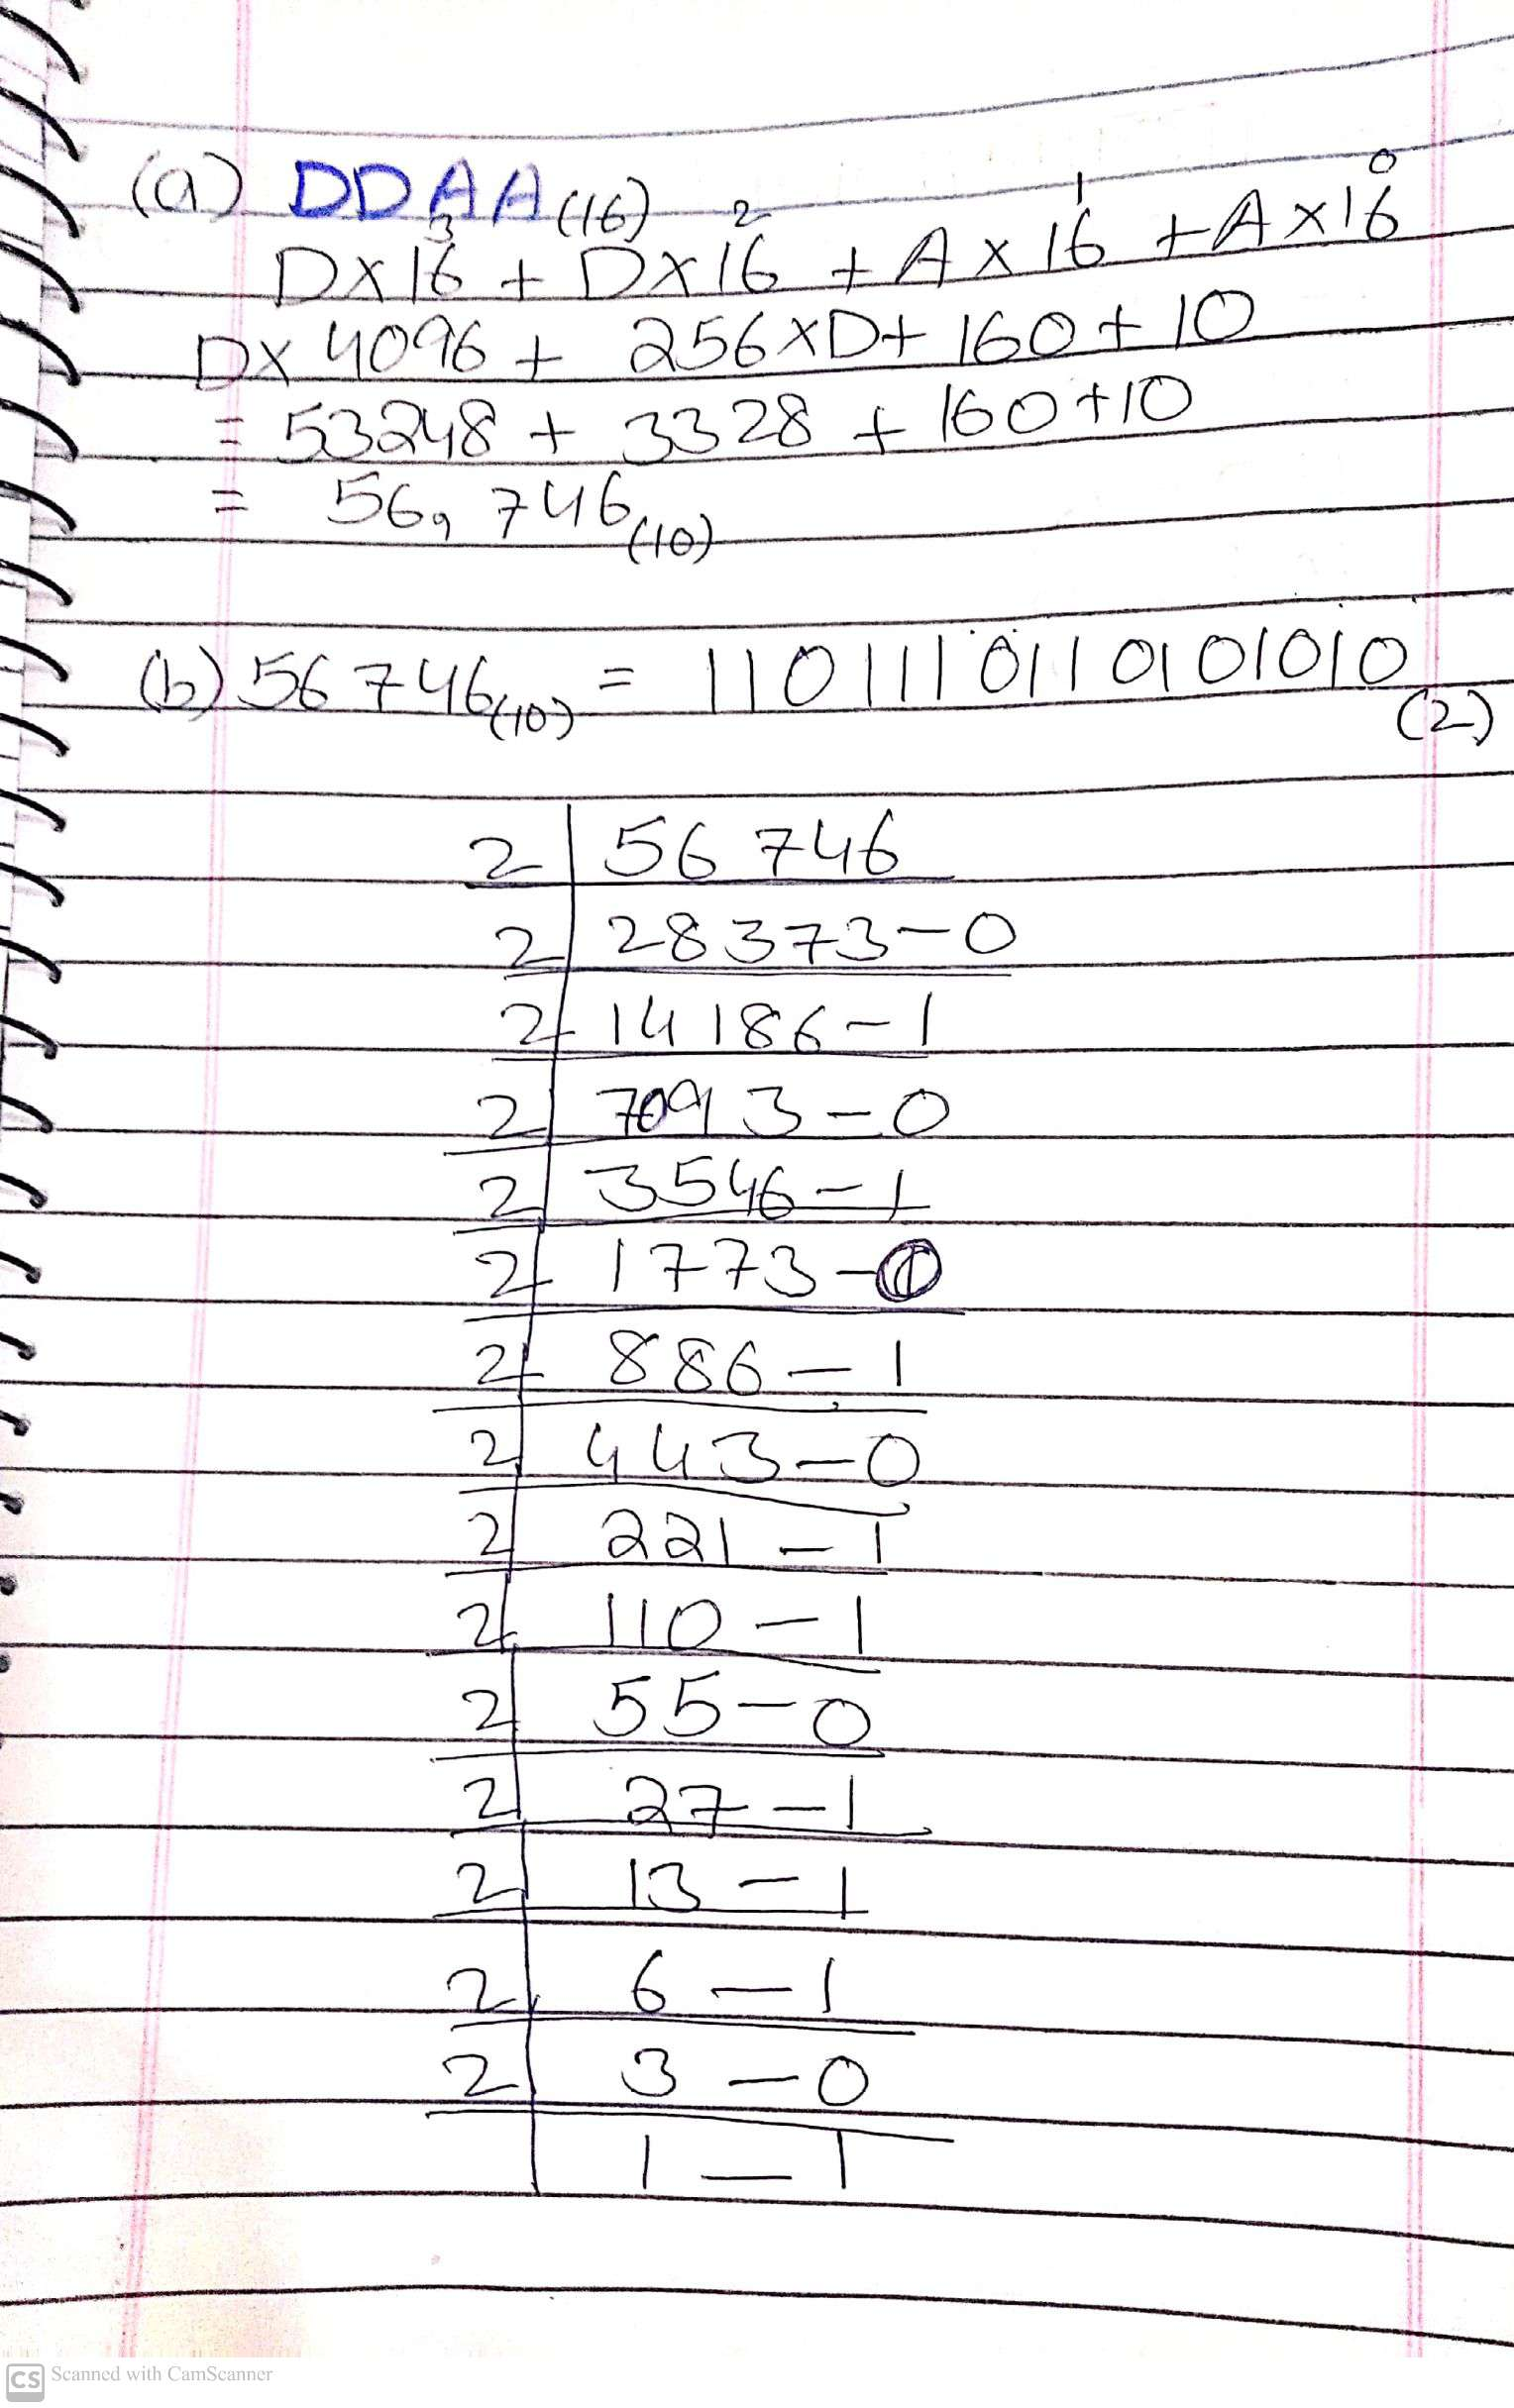 (a) DDAA(16)
Dx16³ + Dx16² + Ax16¹ + Ax16⁰
Dx4096 + 256xD + 160 + 10
= 53248 + 3328 + 160+10
= 56,746(10)
(b) 56746(10) = 1101110110101010(2)
2 | 56746
2 | 28373-0
2 | 14186-1
2 | 7093-0
2 | 3546-1
2 | 1773-0
2 | 886-1
2 | 443-0
2 | 221-1
2 | 110-1
2 | 55-0
2 | 27-1
2 | 13-1
2 | 6-1
2 | 3-0
| 1-1
CS Scanned with CamScanner